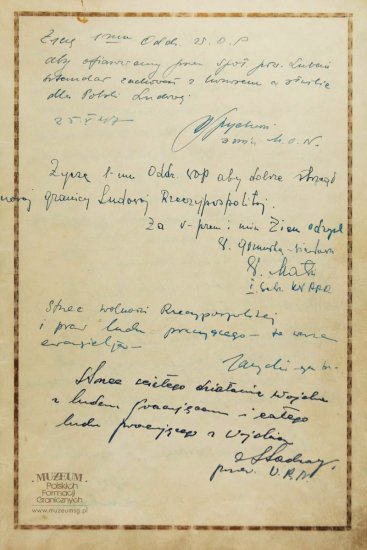 Życzę 1-mu Oddz. W.O.P.
aby ofiarowany przez społ. pow. Lubań
sztandar zachował z honorem w służbie
dla Polski Ludowej.
25 V 47
Spychalski
M.O.N.
Życzę 1-mu Oddz. WOP aby dobrze strzegł
granicy Ludowej Rzeczypospolitej.
Za v-prem i min Ziem Odzysk
W.
I sekr. KW PPR
Strzec wolności Rzeczypospolitej
i praw ludu pracującego – to wasza
ewangelja –
Strzec ścisłego działania Wojska
z ludem pracującym i całego
ludu pracującego z Wojskiem
MUZEUM
Polskich
Formacji
Granicznych
www.muzeumsg.pl